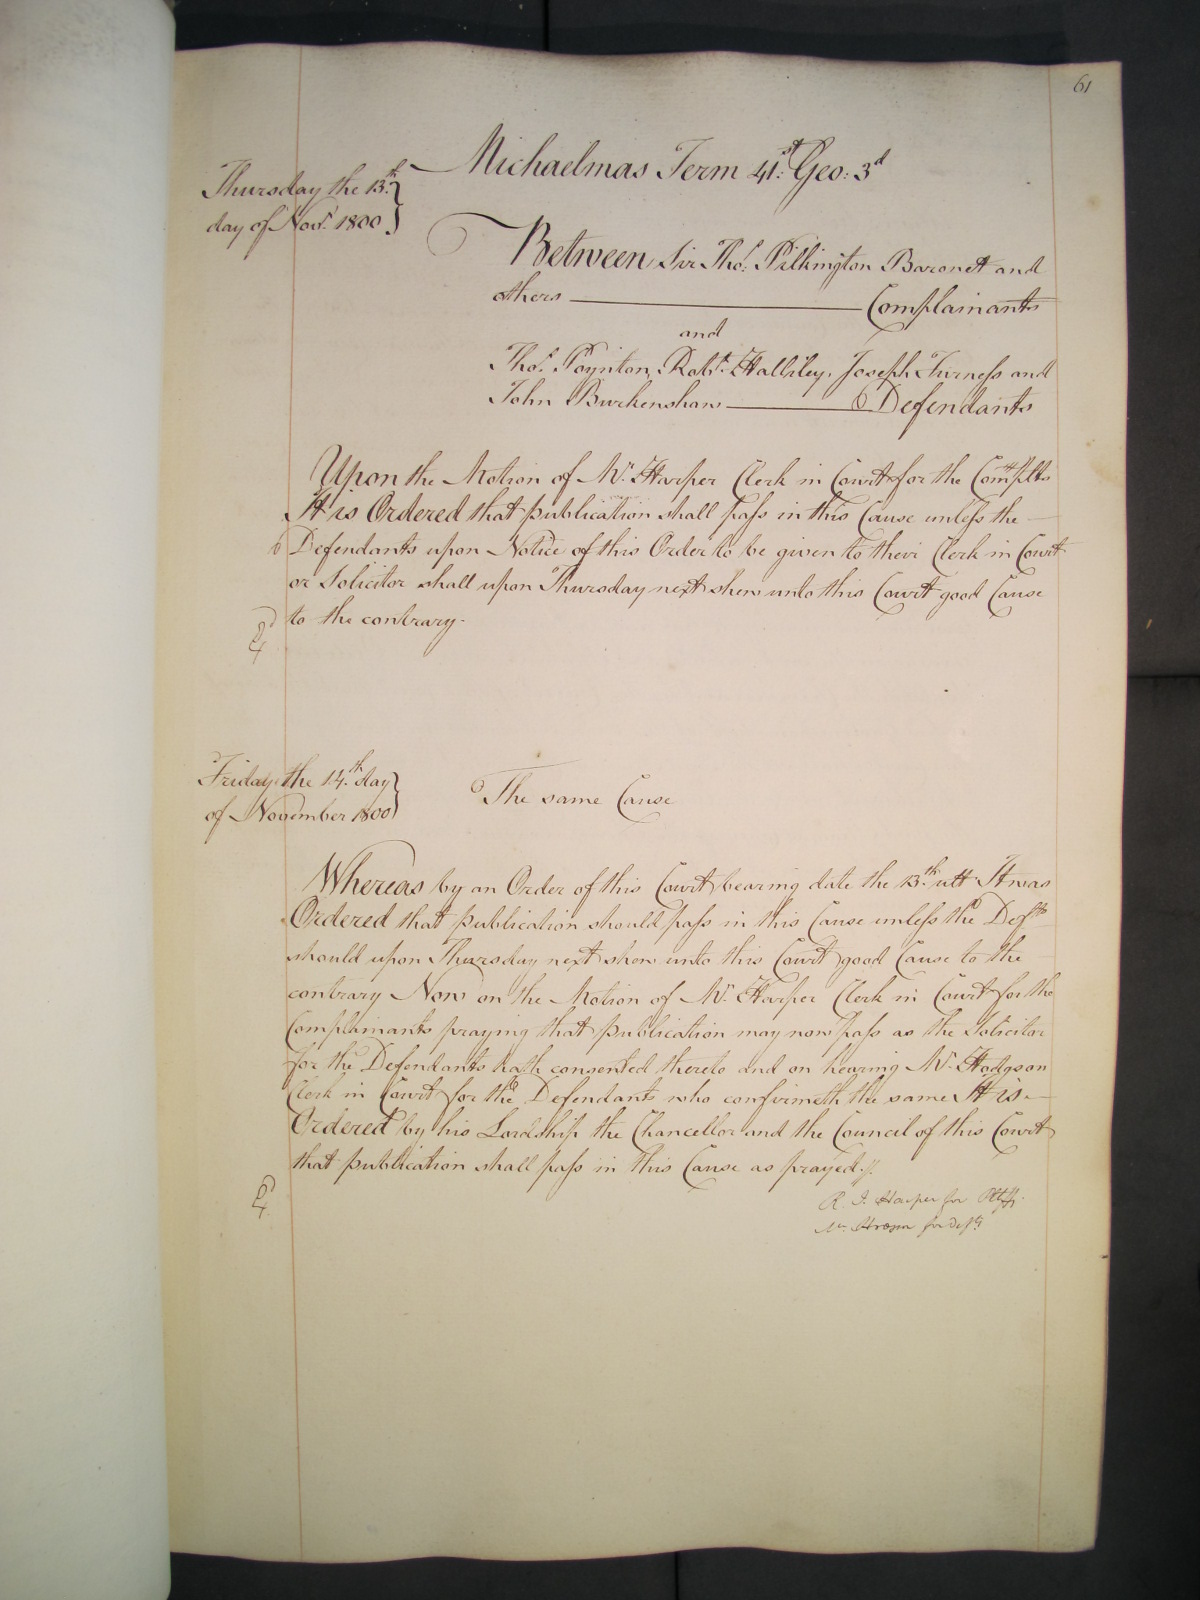 61
Michaelmas Term 41st Geo: 3d
Thursday the 13th
day of Novr. 1800
Between Sir Thos. Pilkington Baronet and
others Complainants
and
Thos. Poynton, Robt. Halliley, Joseph Furness and
John Burkenshaw Defendants
Upon the Motion of Mr. Harper Clerk in Court for the Complts
It is Ordered that publication shall pass in this Cause unless the
Defendants upon Notice of this Order to be given to their Clerk in Court
or Solicitor shall upon Thursday next shew unto this Court good Cause
to the contrary.
Friday the 14th day
of November 1800
The same Cause
Whereas by an Order of this Court bearing date the 13th ult It was
Ordered that publication should pass in this Cause unless the Defts
should upon Thursday next shew unto this Court good Cause to the
contrary Now on the Motion of Mr. Harper Clerk in Court for the
Complainants praying that publication may now pass as the Solicitor
for the Defendants hath consented thereto and on hearing Mr. Hodgson
Clerk in Court for the Defendants who confirmeth the same It is
Ordered by his Lordship the Chancellor and the Council of this Court
that publication shall pass in this Cause as prayed.
R. J. Harper for Pltffs.
for Defts